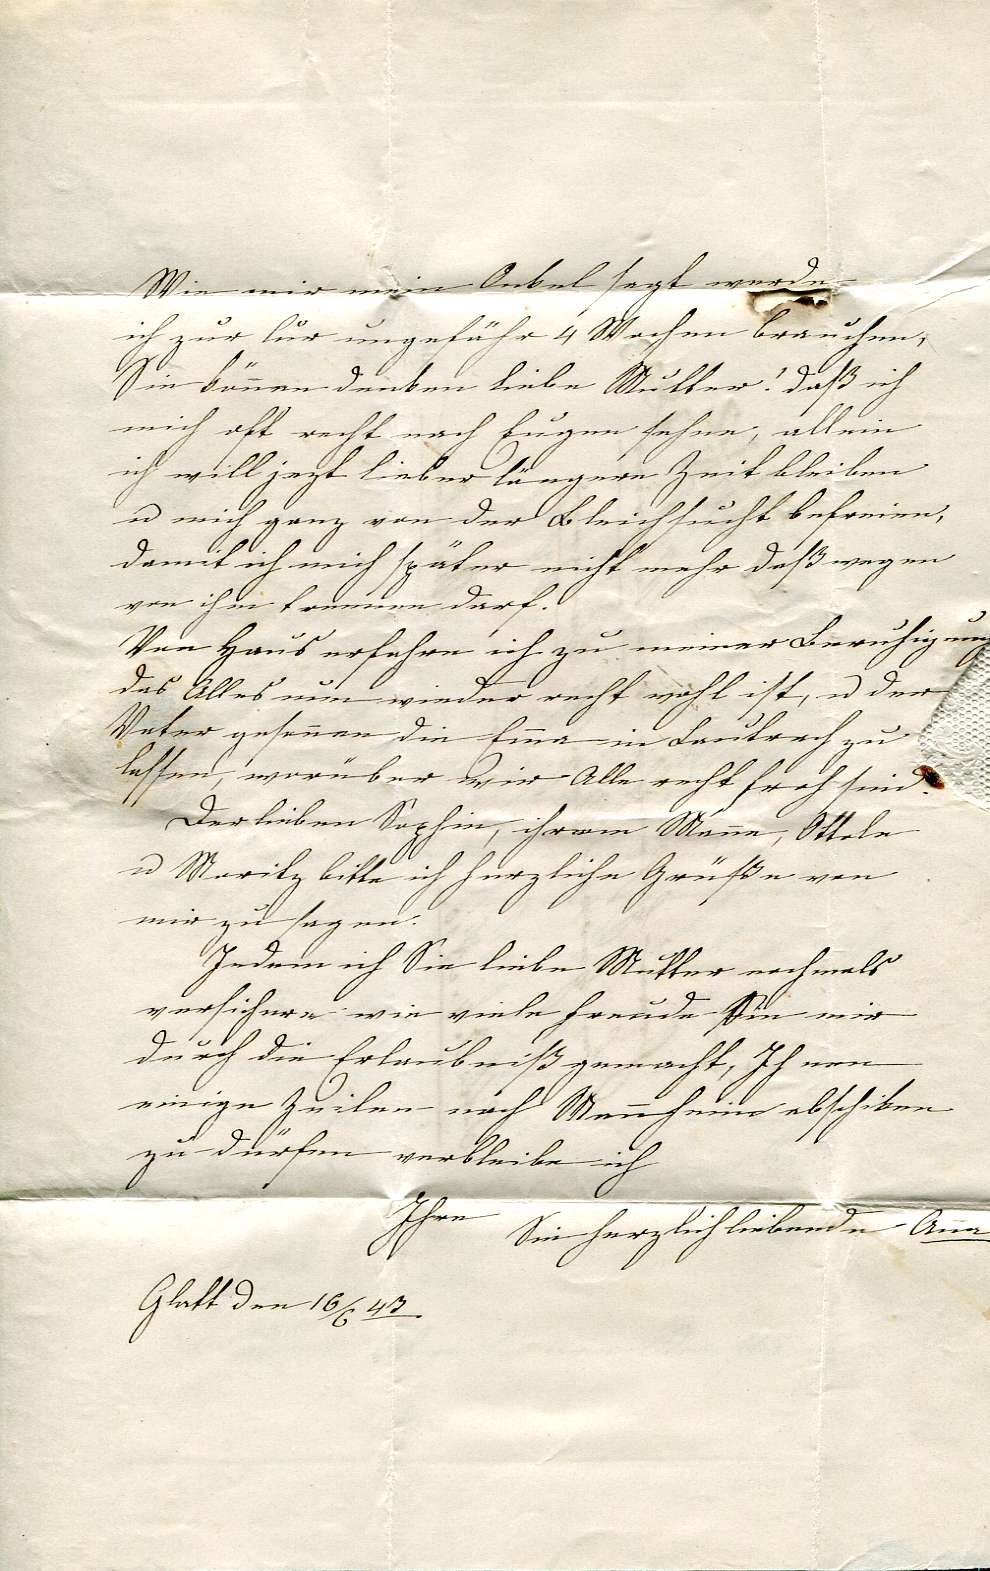 Wie mir mein Onkel sagt werde
ich zur Cur ungefähr 4 Wochen brauchen,
Sie können denken liebe Mutter! daß ich
mich oft recht nach Eugen sehne, allein
ich will jezt lieber längere Zeit bleiben
u mich ganz von der Bleichsucht befreien,
damit ich mich später nicht mehr deßwegen
von ihm trennen darf.
Von Haus erfahre ich zu meiner Beruhigung
das Alles nun wieder recht wohl ist, u der
Vater gesonnen die Emma in Lautrach zu
lassen, worüber wir Alle recht froh sind.
Der lieben Sophie, ihrem Manne, Ottele
u Moritz bitte ich herzliche Grüße von
mir zu sagen.
Indem ich Sie liebe Mutter nochmals
versichere wie viele Freude Sie mir
durch die Erlaubniß gemacht, Ihnen
einige Zeilen nach Mannheim abschiken
zu dürfen verbleibe ich
Ihre
Sie herzlich liebende Anna
Glatt den 16/6 43.